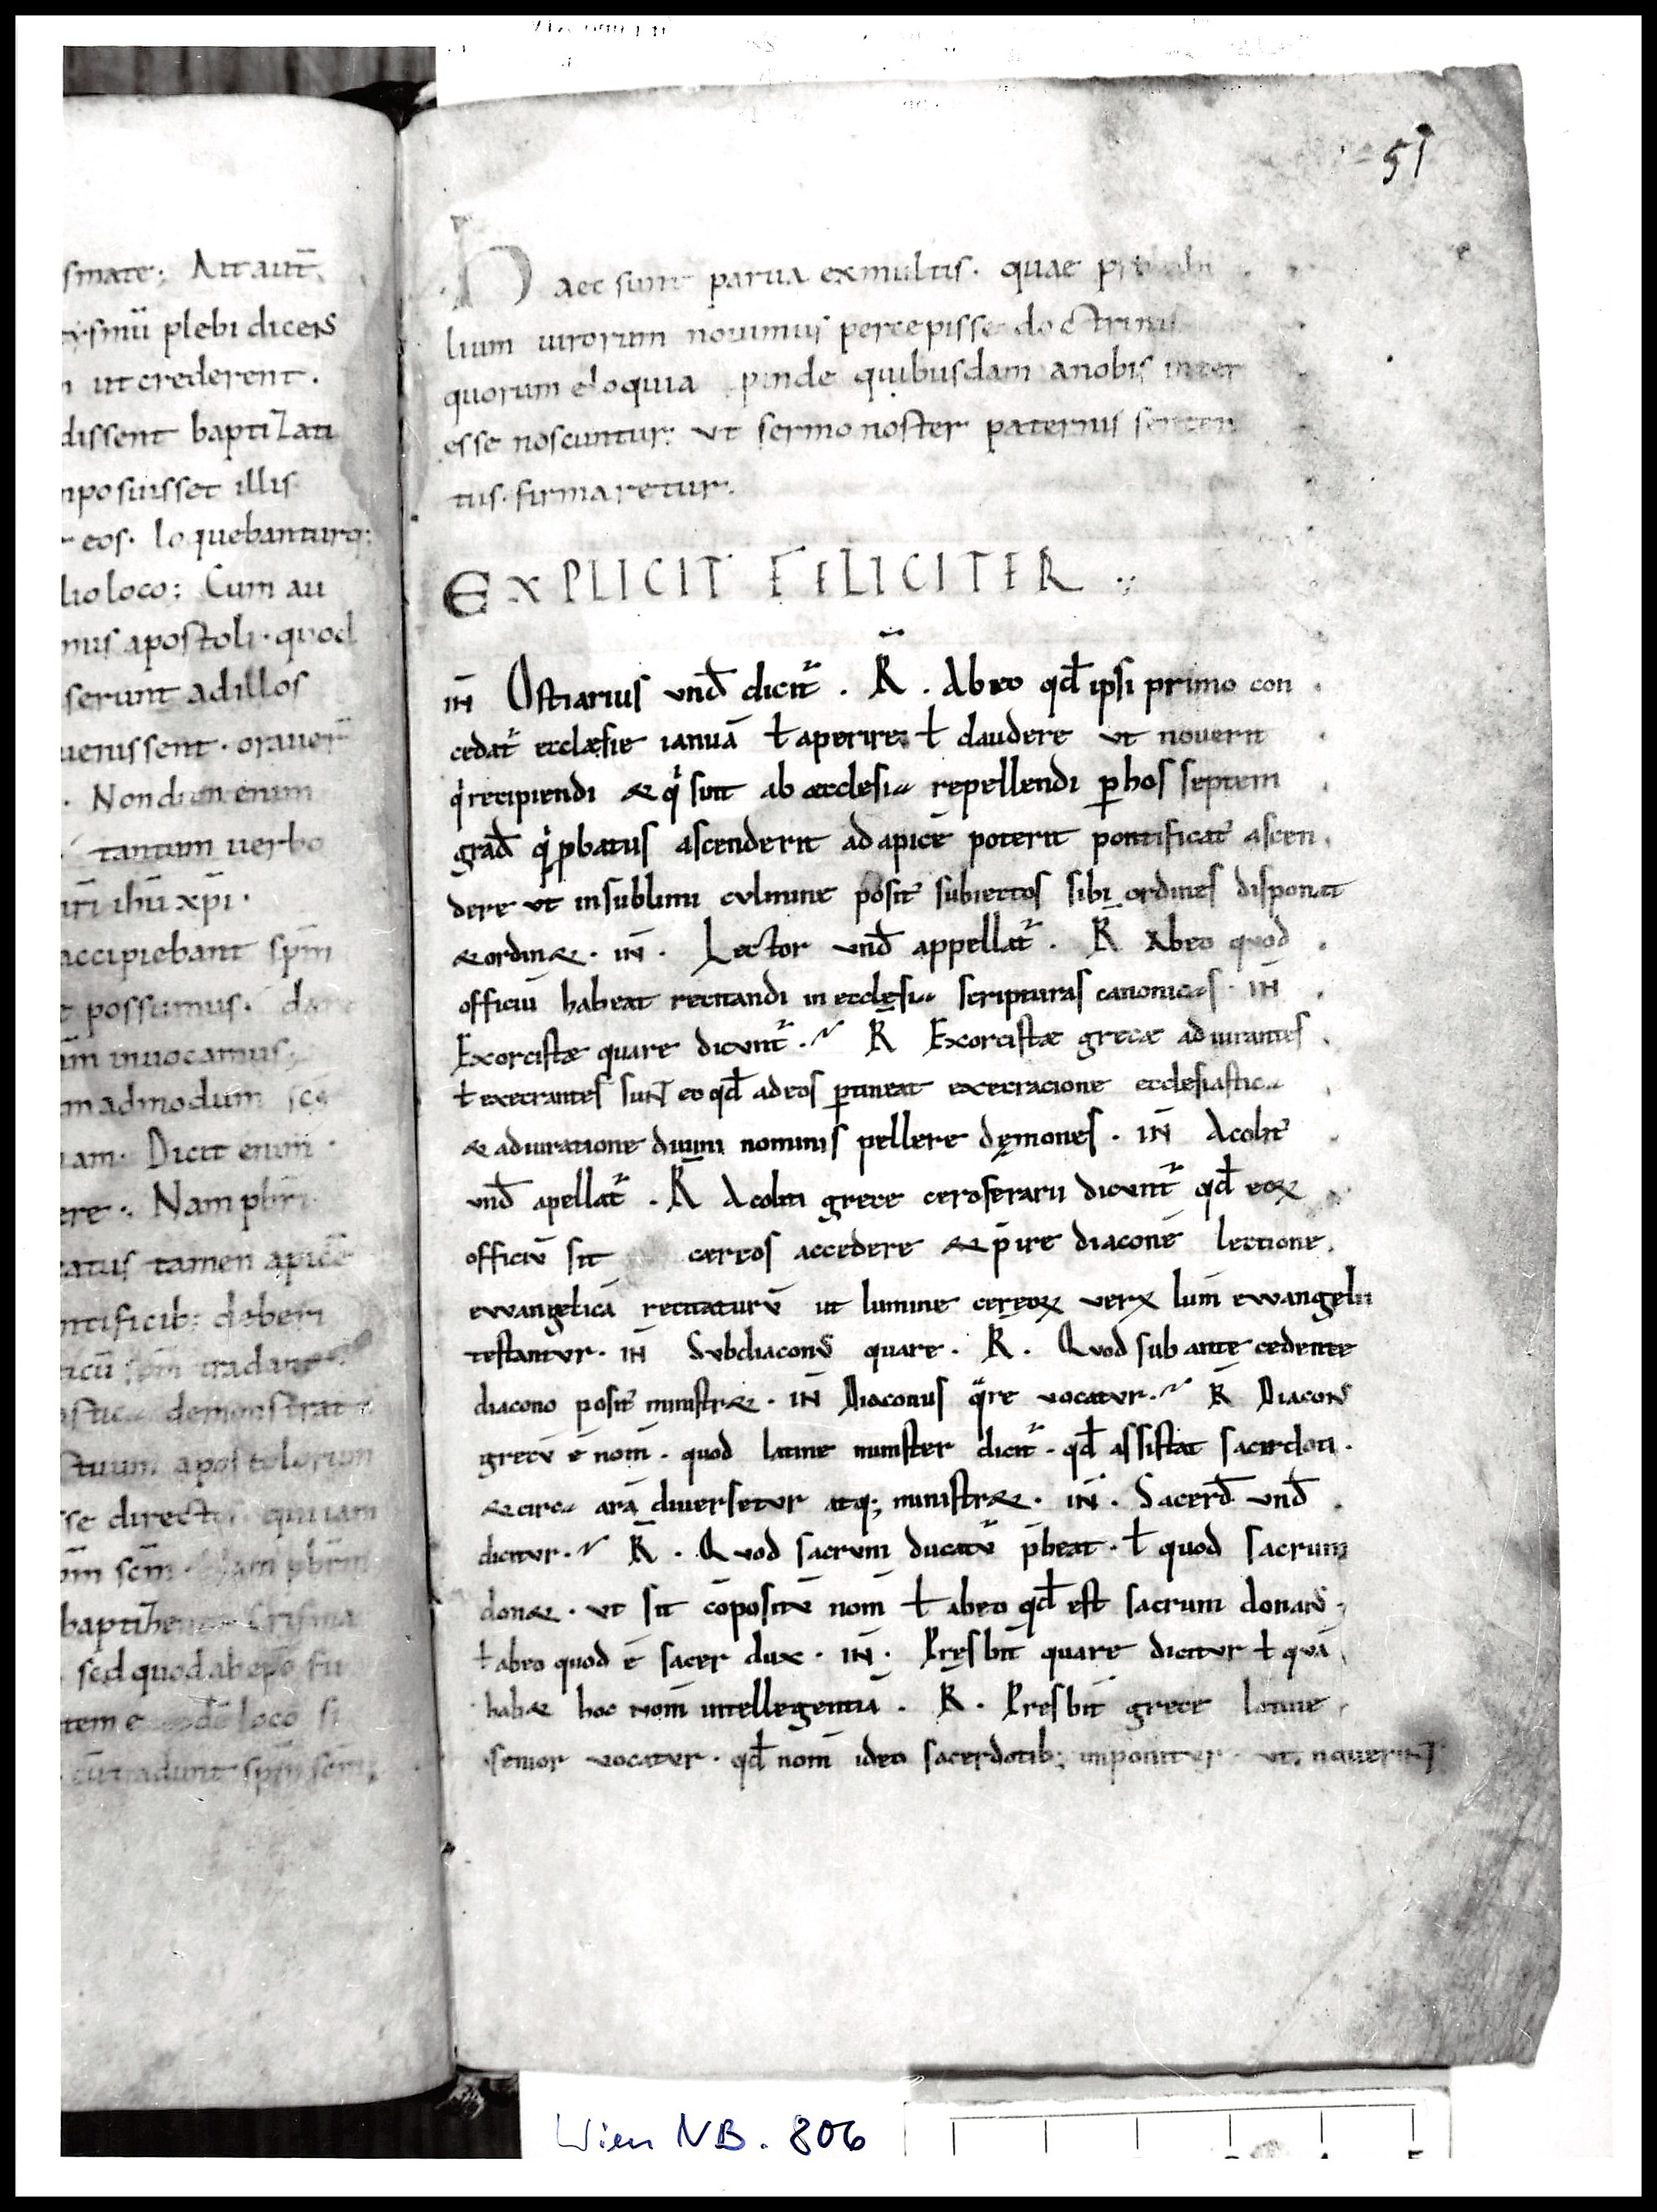 smate; Ait aut̄
ysmū plebi dicens
ut crederent.
dissent baptizati
nposuisset illis
eos. loquebanturq;
lio loco; Cum au
mus apostoli. quod
serunt ad illos
uenissent. orauer̄
. Nondum enim
tantum uerbo
ihū xp̄i.
accipiebant sp̄m
possumus.
inuocamus;
madmodum
am. Dicit enim
ere; Nam pbr̄i
catus tamen apicē
ntificib; deberi
icū sp̄m tradant
demonstrat
stuum apostolorum
se directos qui iam
sc̄m. Nam pbr̄m
crisma
sed quod ab ep̄o
loco si
tradunt sp̄m sc̄m;
51
Haec sunt parua ex multis. quae
lium uirorum nouimus percepisse doctrinis
quorum eloquia pinde quibusdam a nobis inter
esse noscuntur; ut sermo noster paternis senten
tus. firmaretur.
EXPLICIT FELICITER
IN̄ Ostiarius und̄ dicit᷑. R̄. Ab eo qd̄ ipsi primo con
cedat᷑ ecclæsie ianuā ł aperire; ł claudere ut nouerit
qͥ recipiendi & qͥ sint ab æcclesia repellendi ꝑ hos septem
grad̄ qͥ ꝓbatus ascenderit ad apicē poterit pontificat᷑ ascen
dere ut in sublimi culmine posit᷑ subiectos sibi ordines disponat
& ordin&. IN̄. Lector und̄ appellat᷑. R̄ Ab eo quod
officiū habeat recitandi in ecclęsia scripturas canonicas. IN̄
Exorcistæ quare dicunt᷑. R̄ Exorcistæ grecæ adiurantes
ł execrantes sunt eo qd̄ ad eos ꝑtineat execracione ecclesiastica
& adiuratione diuini nominis pellere dęmones. IN̄ Acolit᷑
und̄ apellat᷑. R̄ Acoliti grece ceroferarii dicunt᷑ qd̄ eoꝝ
officiū sit cæreos accedere & p̄ire diaconē lectione
ewangelicā recitaturū ut lumine cereoꝝ ueꝝ lum̄ ewangelii
testantur. IN̄ Subdiacons quare. R̄. Quod sub antecedente
diacono posit᷑ ministr&. IN̄ Diaconus qͣre vocatur. R̄ Diacons
grecū ē nom̄. quod latine minister dicit᷑. qd̄ assistat sacerdoti.
& circa arā diuersetur atq; ministr&. IN̄. Sacerd̄ und̄
dicitur. R̄. Quod sacrum ducatū p̄beat. ł quod sacrum
don&. ut sit cōpositū nom̄ ł ab eo qd̄ est sacrum donans.
ł ab eo quod ē sacer dux. IN̄. Presbit̄ quare dicitur ł quā
hab& hoc nom̄ intellegentiā. R̄. Presbit̄ grece latine
senior vocatur. qd̄ nom̄ ideo sacerdotib; imponitur. ut nouerint
Wien NB. 806